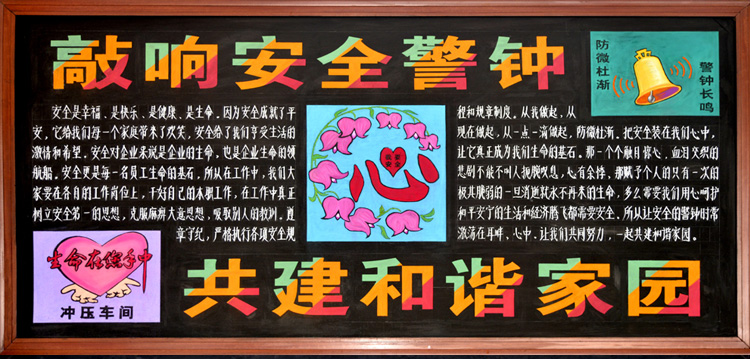 敲响安全警钟
防微杜渐
警钟长鸣
安全是幸福、是快乐、是健康、是生命。因为安全成就了平
安,它给我们每一个家庭带来了欢笑,安全给了我们享受生活的
激情和希望。安全对企业来说是企业的生命,也是企业生命的领
航船。安全更是每一名员工生命的基石,所以在工作中,我们大
家要在各自的工作岗位上,干好自己的本职工作,在工作中真正
树立安全第一的思想,克服麻痹大意思想,吸取别人的教训。遵
章守纪,严格执行各项安全规
程和规章制度。从我做起,从
现在做起,从一点一滴做起,防微杜渐,把安全装在我们心中,
让它真正成为我们生命的基石。那一个个触目惊心,血泪交织的
悲剧不能不叫人扼腕叹息,心有余悸,那赋予个人的只有一次的
极其脆弱的一旦消逝就永不再来的生命,多么需要我们用心呵护
和平安宁的生活和经济腾飞都需要安全,所以让安全的警钟时常
激荡在耳畔、心中,让我们共同努力,一起共建和谐家园。
心
生命在您手中
冲压车间
共建和谐家园